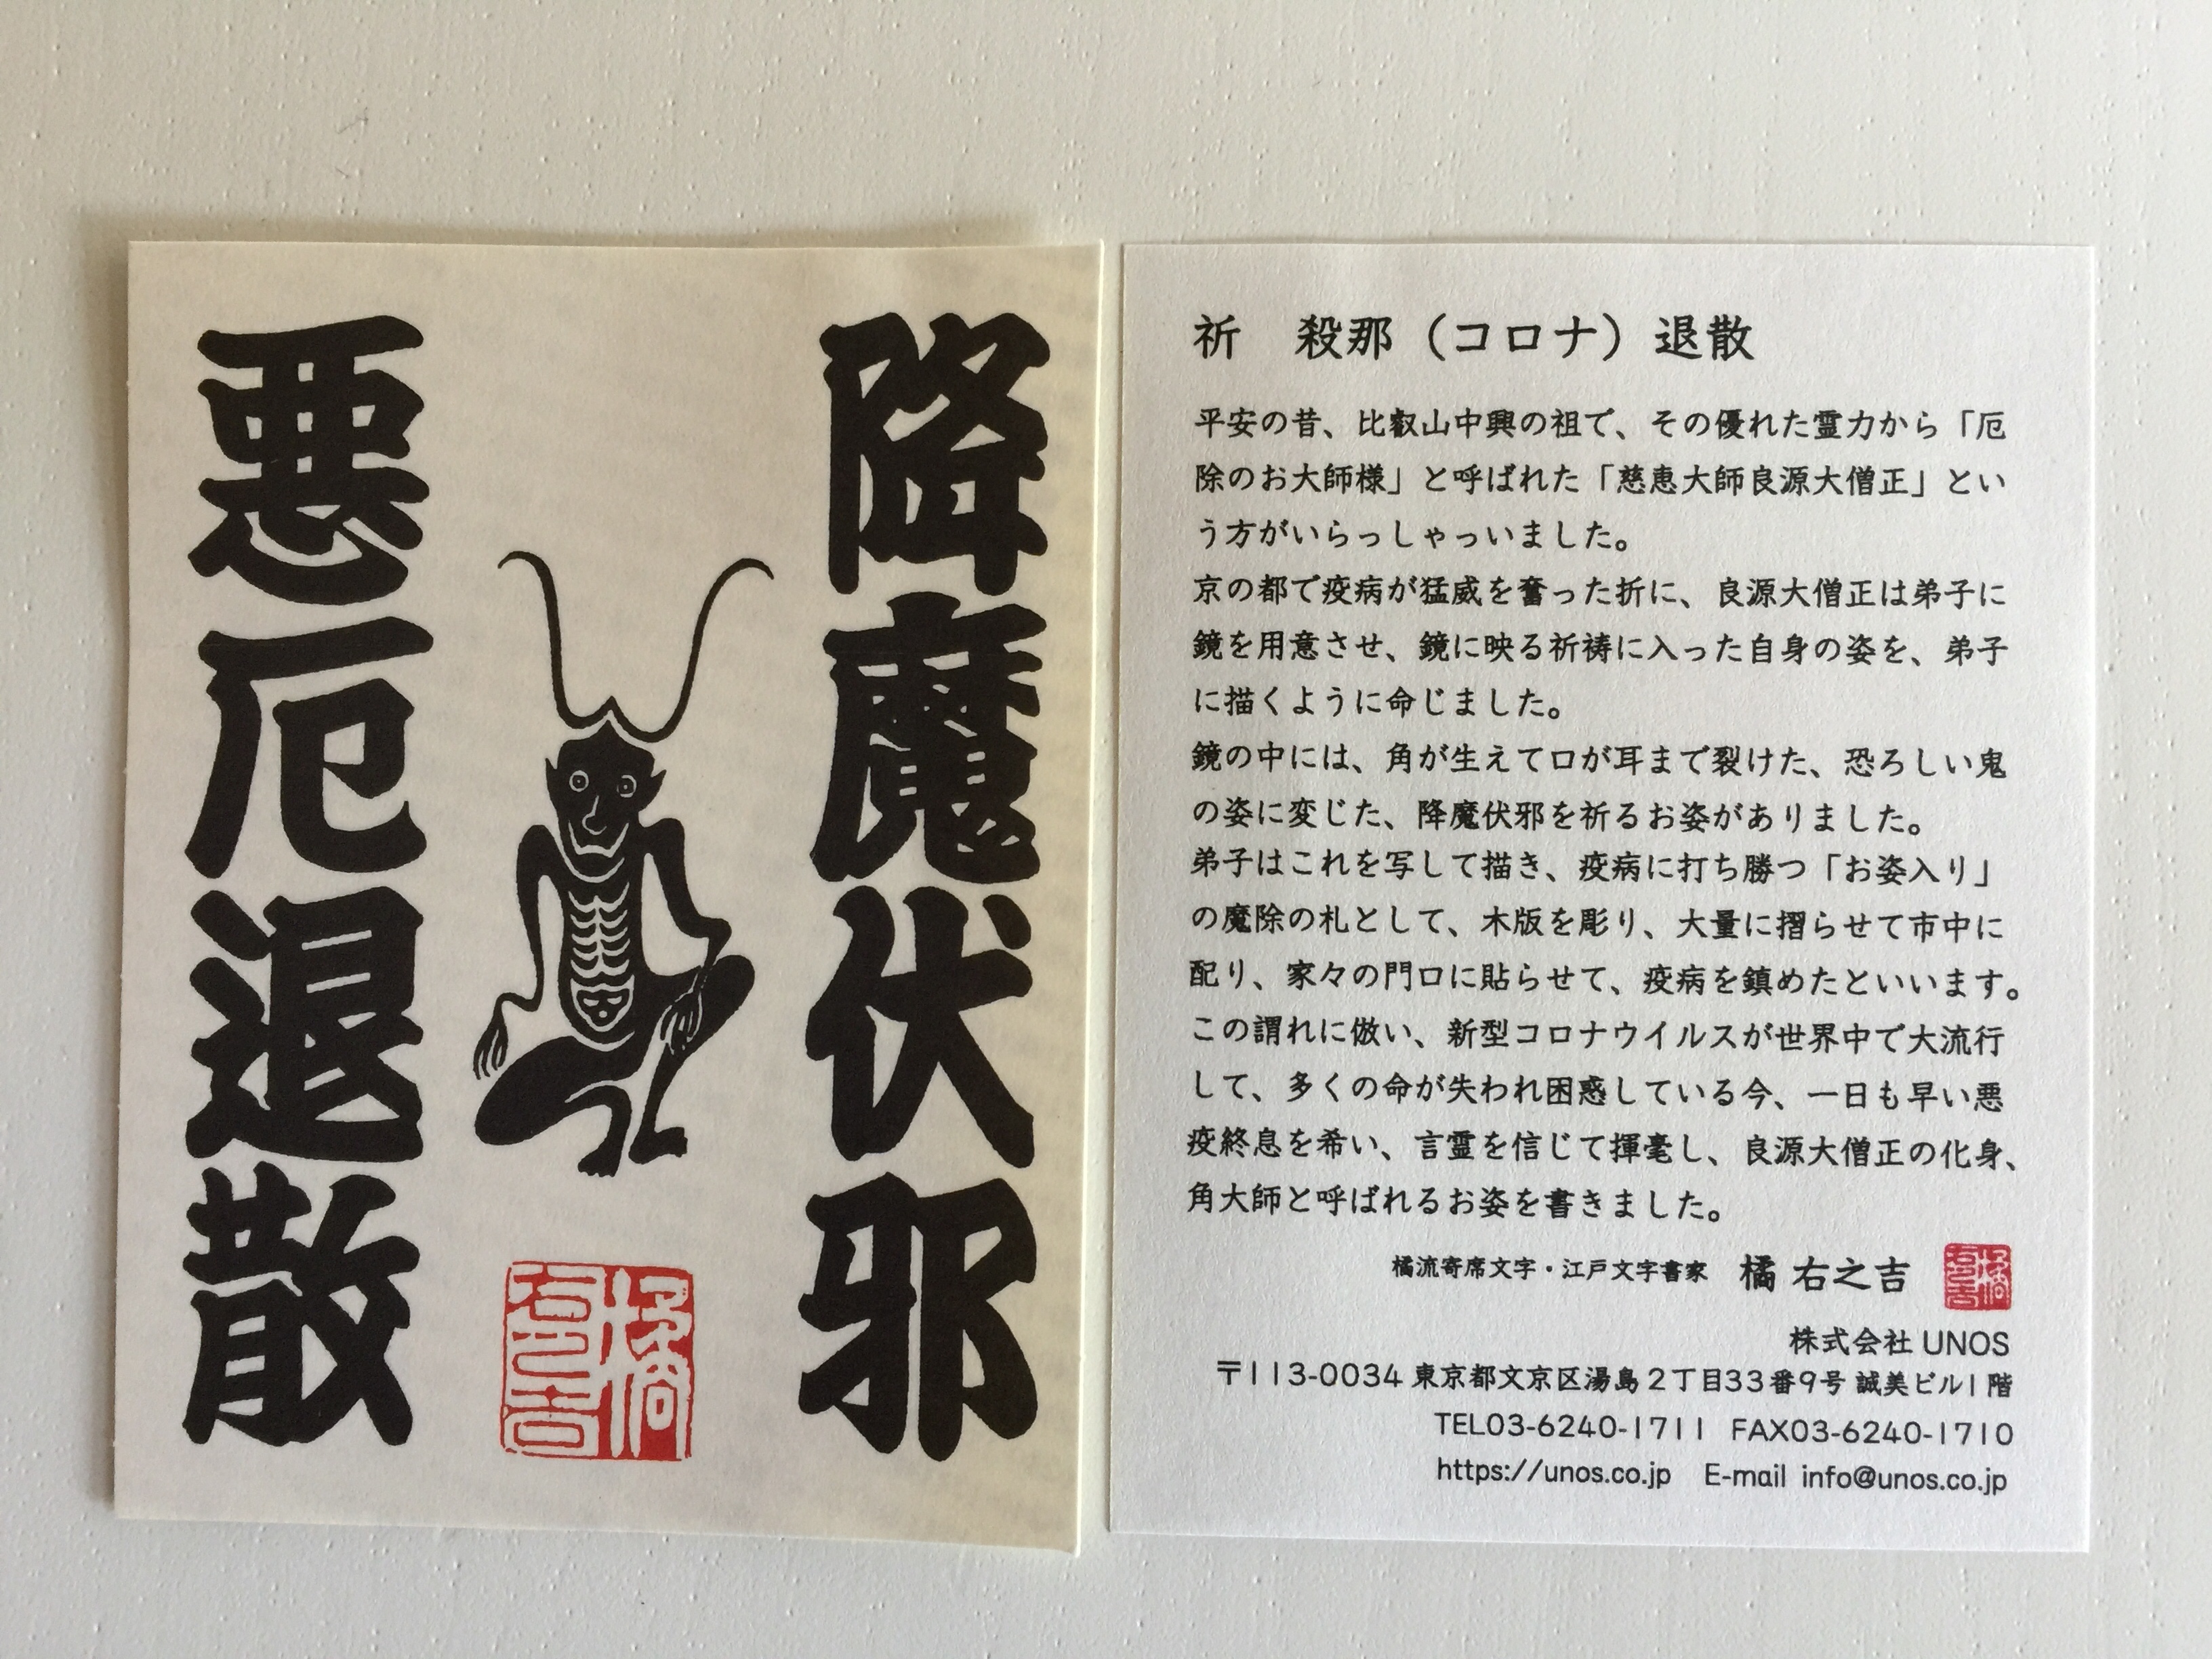 降魔伏邪
悪厄退散
橘
右之吉
祈　殺那（コロナ）退散
平安の昔、比叡山中興の祖で、その優れた霊力から「厄
除のお大師様」と呼ばれた「慈恵大師良源大僧正」とい
う方がいらっしゃっいました。
京の都で疫病が猛威を奮った折に、良源大僧正は弟子に
鏡を用意させ、鏡に映る祈祷に入った自身の姿を、弟子
に描くように命じました。
鏡の中には、角が生えて口が耳まで裂けた、恐ろしい鬼
の姿に変じた、降魔伏邪を祈るお姿がありました。
弟子はこれを写して描き、疫病に打ち勝つ「お姿入り」
の魔除の札として、木版を彫り、大量に摺らせて市中に
配り、家々の門口に貼らせて、疫病を鎮めたといいます。
この謂れに倣い、新型コロナウイルスが世界中で大流行
して、多くの命が失われ困惑している今、一日も早い悪
疫終息を希い、言霊を信じて揮毫し、良源大僧正の化身、
角大師と呼ばれるお姿を書きました。
橘流寄席文字・江戸文字書家　橘 右之吉
橘
右之吉
株式会社 UNOS
〒113-0034 東京都文京区湯島2丁目33番9号 誠美ビル1階
TEL03-6240-1711 FAX03-6240-1710
https://unos.co.jp　E-mail info@unos.co.jp